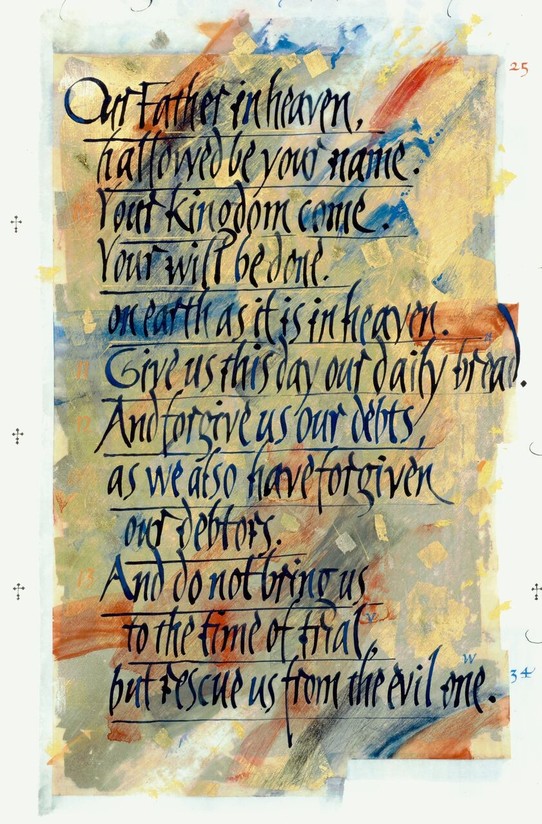 25
Our Father in heaven,
hallowed be your name.
Your kingdom come.
Your will be done.
on earth as it is in heaven.
11 Give us this day our daily bread.
12 And forgive us our debts,
as we also have forgiven
our debtors.
13 And do not bring us
to the time of trial,
but rescue us from the evil one.
34